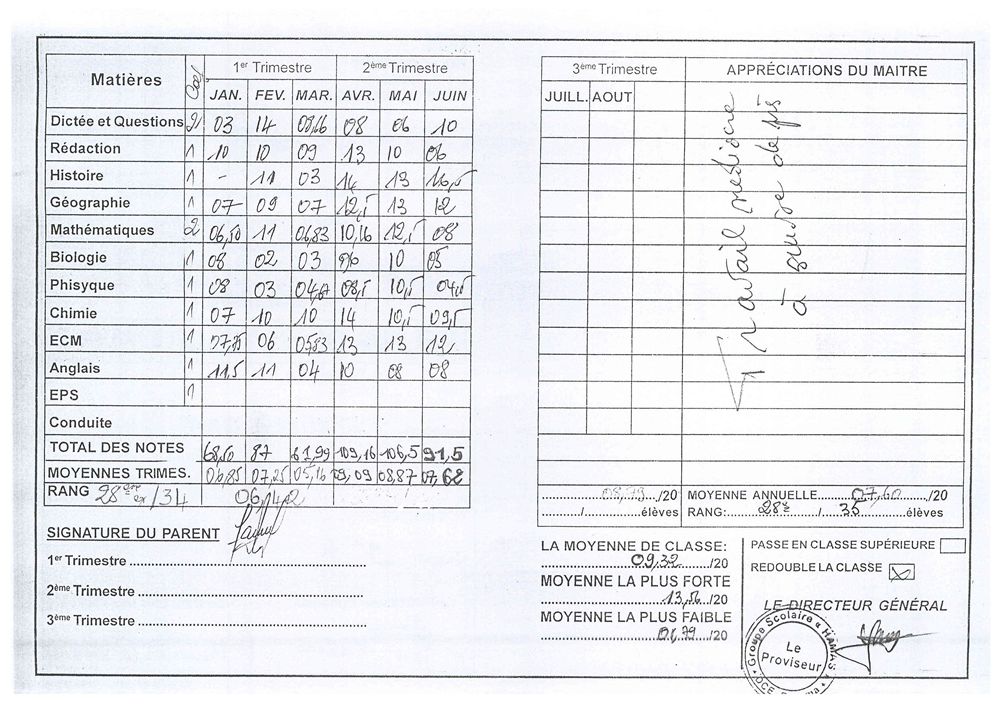 Matières Coef 1er Trimestre 2ème Trimestre
JAN. FEV. MAR. AVR. MAI JUIN
Dictée et Questions 2 03 14 08,16 08 06 10
Rédaction 1 10 10 09 13 10 06
Histoire 1 - 11 03 14 13 16,5
Géographie 1 07 09 07 12,5 13 12
Mathématiques 2 06,50 11 06,83 10,16 12,5 08
Biologie 1 08 02 03 06 10 05
Phisyque 1 08 03 08,5 10,5 04,5
Chimie 1 07 10 10 14 10,5 09,5
ECM 1 07,75 06 05,83 13 13 12
Anglais 1 11,5 11 04 10 08 08
EPS 1
Conduite
TOTAL DES NOTES 68,50 87 61,99 109,16 106,5 91,5
MOYENNES TRIMES. 07,25 05,16 09,09 08,87 07,62
RANG 28ème /34
SIGNATURE DU PARENT
1er Trimestre
2ème Trimestre
3ème Trimestre
3ème Trimestre APPRÉCIATIONS DU MAITRE
JUILL. AOUT
Travail médiocre
à
/20 MOYENNE ANNUELLE 07,60 /20
/ élèves RANG: 28è / 35 élèves
LA MOYENNE DE CLASSE:
09,32 /20
MOYENNE LA PLUS FORTE
13,56 /20
MOYENNE LA PLUS FAIBLE
/20
PASSE EN CLASSE SUPÉRIEURE
REDOUBLE LA CLASSE
LE DIRECTEUR GÉNÉRAL
Groupe Scolaire
Le
Proviseur